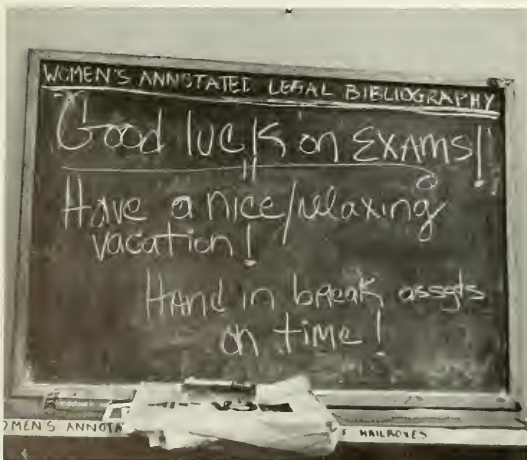 WOMEN'S ANNOTATED LEGAL BIBLIOGRAPHY
Good luck on EXAMS!
Have a nice/relaxing
vacation!
Hand in break assgts
on time!
OMEN'S ANNOTA
MAILBOXES